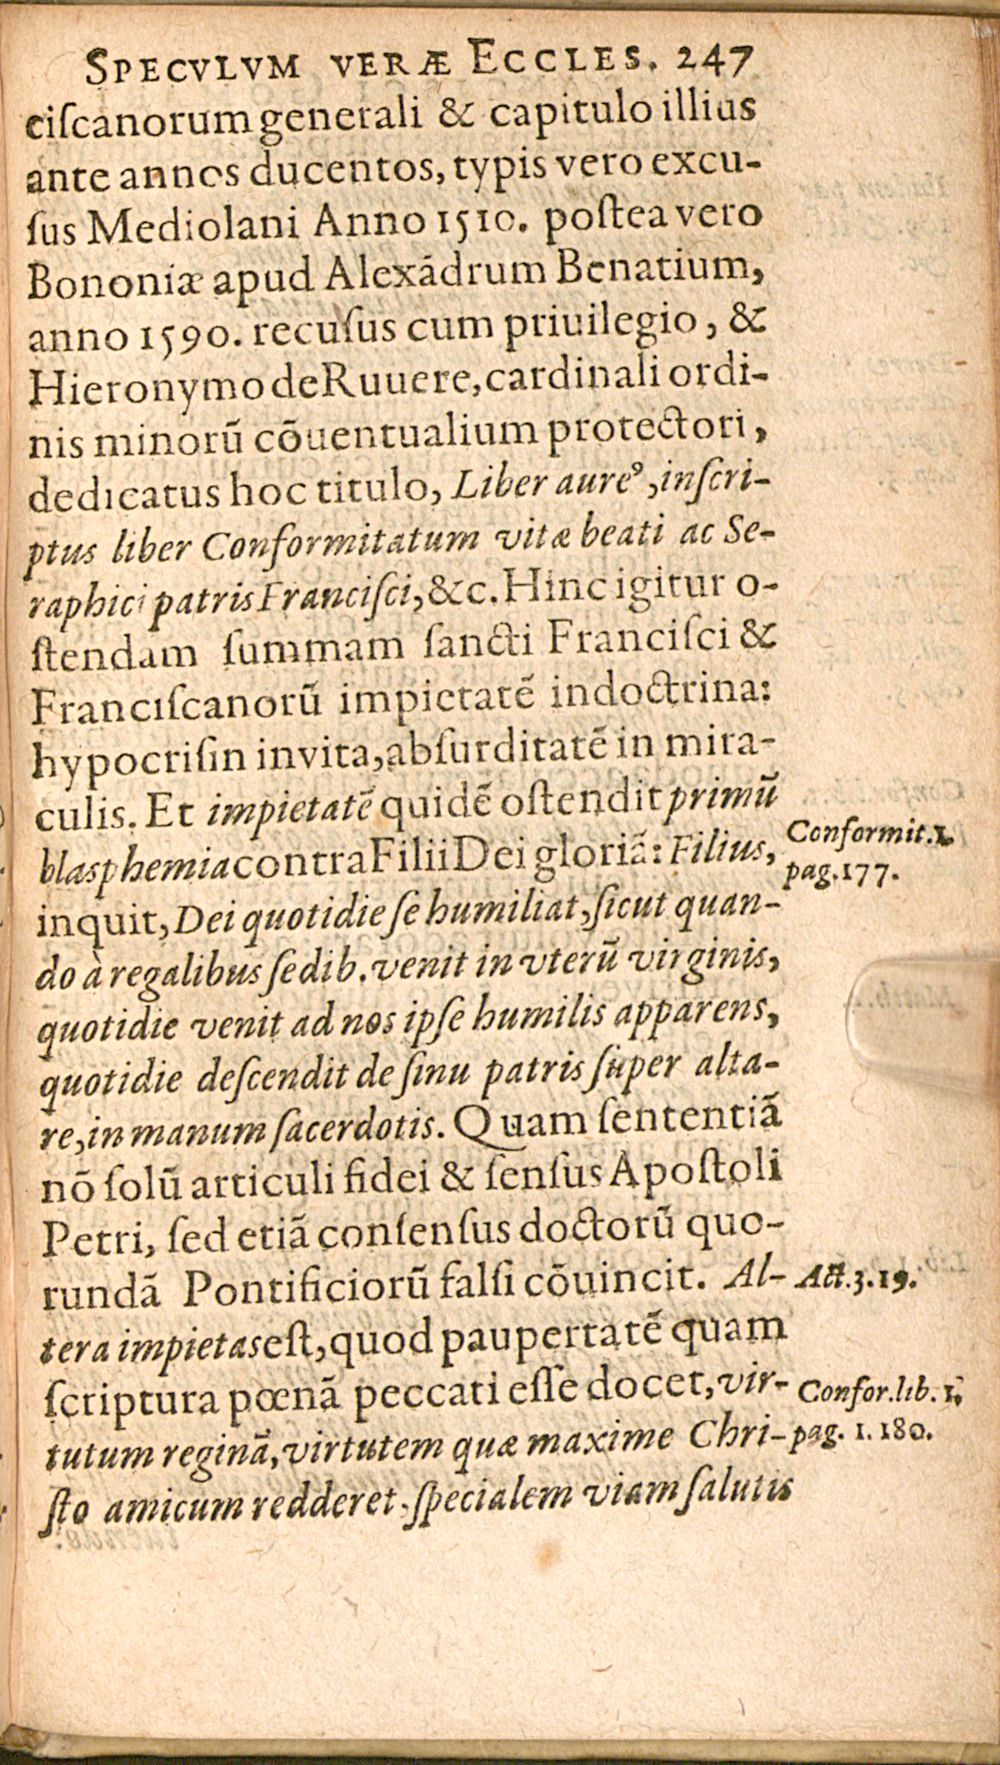 SPECVLVM VERÆ ECCLES. 247
ciſcanorum generali & capitulo illius
ante annos ducentos, typis vero excu-
ſus Mediolani Anno 1510. poſtea vero
Bononiæ apud Alexãdrum Benatium,
anno 1590. recuſus cum priuilegio, &
Hieronymo de Ruuere, cardinali ordi-
nis minorũ cõuentualium protectori,
dedicatus hoc titulo, Liber aureꝰ, inſcri-
ptus liber Conformitatum vitæ beati ac Se-
raphici patris Franciſci, &c. Hinc igitur o-
ſtendam ſummam ſancti Franciſci &
Franciſcanorũ impietatẽ in doctrina:
hypocriſin in vita, abſurditatẽ in mira-
culis. Et impietatẽ quidẽ oſtendit primũ
blasphemia contra Filii Dei gloriã: Filius,
Conformit. 1.
pag. 177.
inquit, Dei quotidie ſe humiliat, ſicut quan-
do à regalibus ſedib. venit in vterũ virginis,
quotidie venit ad nos ipſe humilis apparens,
quotidie deſcendit de ſinu patris ſuper alta-
re, in manum ſacerdotis. Quam ſententiã
nõ ſolũ articuli fidei & ſenſus Apoſtoli
Petri, ſed etiã conſenſus doctorũ quo-
rundã Pontificiorũ falſi cõuincit. Al-
Act. 3. 19.
tera impietas eſt, quod paupertatẽ quam
ſcriptura pœnã peccati eſſe docet, vir-
Confor. lib. 1.
tutum reginã, virtutem quæ maxime Chri-
pag. 1. 180.
ſto amicum redderet, ſpecialem viam ſalutis